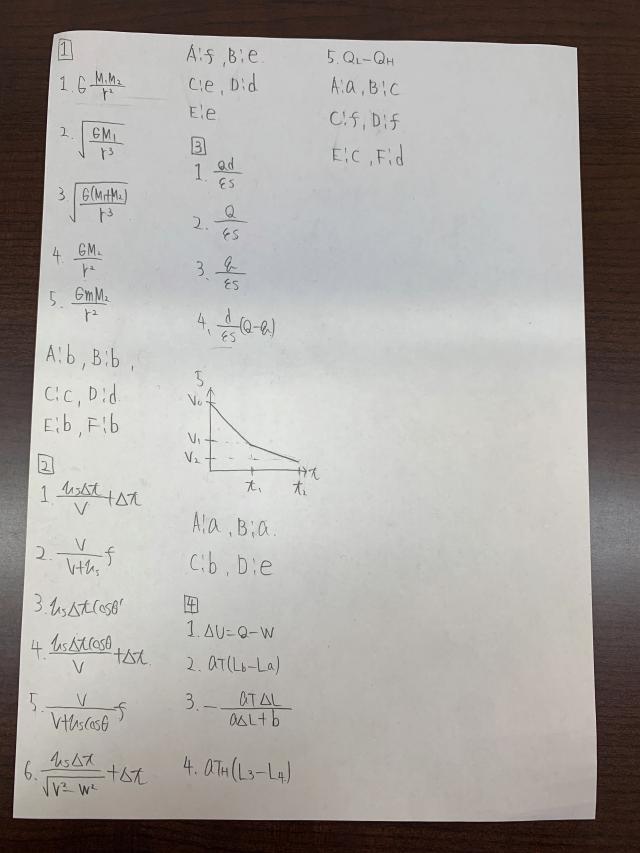 1
1. G M₁M₂/r²
2. √(GM₁/r³)
3. √(G(M₁+M₂)/r³)
4. GM₂/r²
5. GmM₂/r²
A:b, B:b,
C:c, D:d
E:b, F:b
2
1. uₛΔt/V + Δt
2. V/(V+uₛ) f
3. uₛΔt cosθ'
4. uₛΔt cosθ/V + Δt
5. V/(V+uₛcosθ) f
6. uₛΔt/√(V²-W²) + Δt
A:f, B:e.
C:e, D:d
E:e
3
1. Qd/εs
2. Q/εs
3. q/εs
4. d/εs (Q-q)
5
V₀
V₁
V₂
t₁ t₂ t
A:a, B:a.
C:b, D:e
4
1. ΔU=Q-W
2. aT(Lb-La)
3. - aTΔL/(aΔL+b)
4. aTH(L₃-L₄)
5. QL-QH
A:a, B:c
C:f, D:f
E:c, F:d